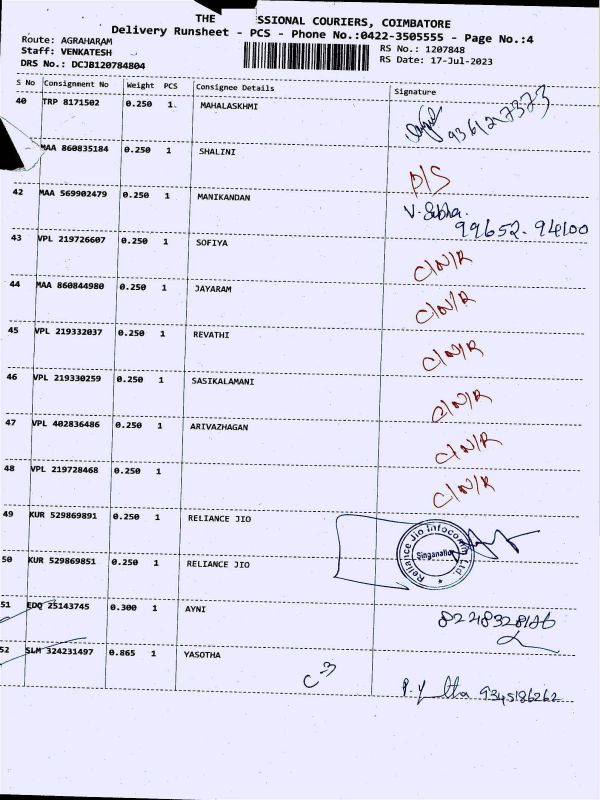 THE SSIONAL COURIERS, COIMBATORE
Delivery Runsheet - PCS - Phone No.:0422-3505555 - Page No.:4
Route: AGRAHARAM
RS No.: 1207848
Staff: VENKATESH
RS Date: 17-Jul-2023
DRS No.: DCJB120784804
S No Consignment No Weight PCS Consignee Details Signature
40 TRP 8171502 0.250 1 MAHALASKHMI
MAA 860835184 0.250 1 SHALINI D/S
42 MAA 569902479 0.250 1 MANIKANDAN V. Subha.
99652.94100
43 VPL 219726607 0.250 1 SOFIYA C/N/R
44 MAA 860844980 0.250 1 JAYARAM C/N/R
45 VPL 219332037 0.250 1 REVATHI C/N/R
46 VPL 219330259 0.250 1 SASIKALAMANI C/N/R
47 VPL 402836486 0.250 1 ARIVAZHAGAN C/N/R
48 VPL 219728468 0.250 1 C/N/R
49 KUR 529869891 0.250 1 RELIANCE JIO
Reliance Jio Infocomm Ltd
Singanallur
50 KUR 529869851 0.250 1 RELIANCE JIO
51 EDQ 25143745 0.300 1 AYNI
52 SLM 324231497 0.865 1 YASOTHA
C-3
9345186262